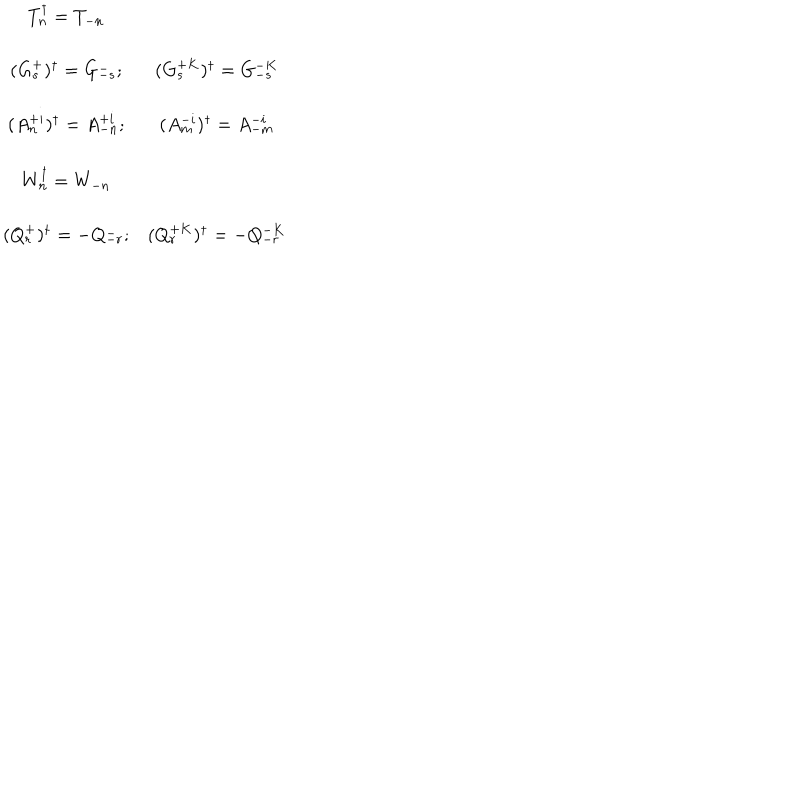 $T_n^\dagger = T_{-n}$
$(G_s^+)^\dagger = G_{-s}^-; \quad (G_s^{+K})^\dagger = G_{-s}^{-K}$
$(A_n^{+i})^\dagger = A_{-n}^{+i}; \quad (A_m^{-i})^\dagger = A_{-m}^{-i}$
$W_n^\dagger = W_{-n}$
$(Q_r^+)^\dagger = -Q_{-r}^-; \quad (Q_r^{+K})^\dagger = -Q_{-r}^{-K}$